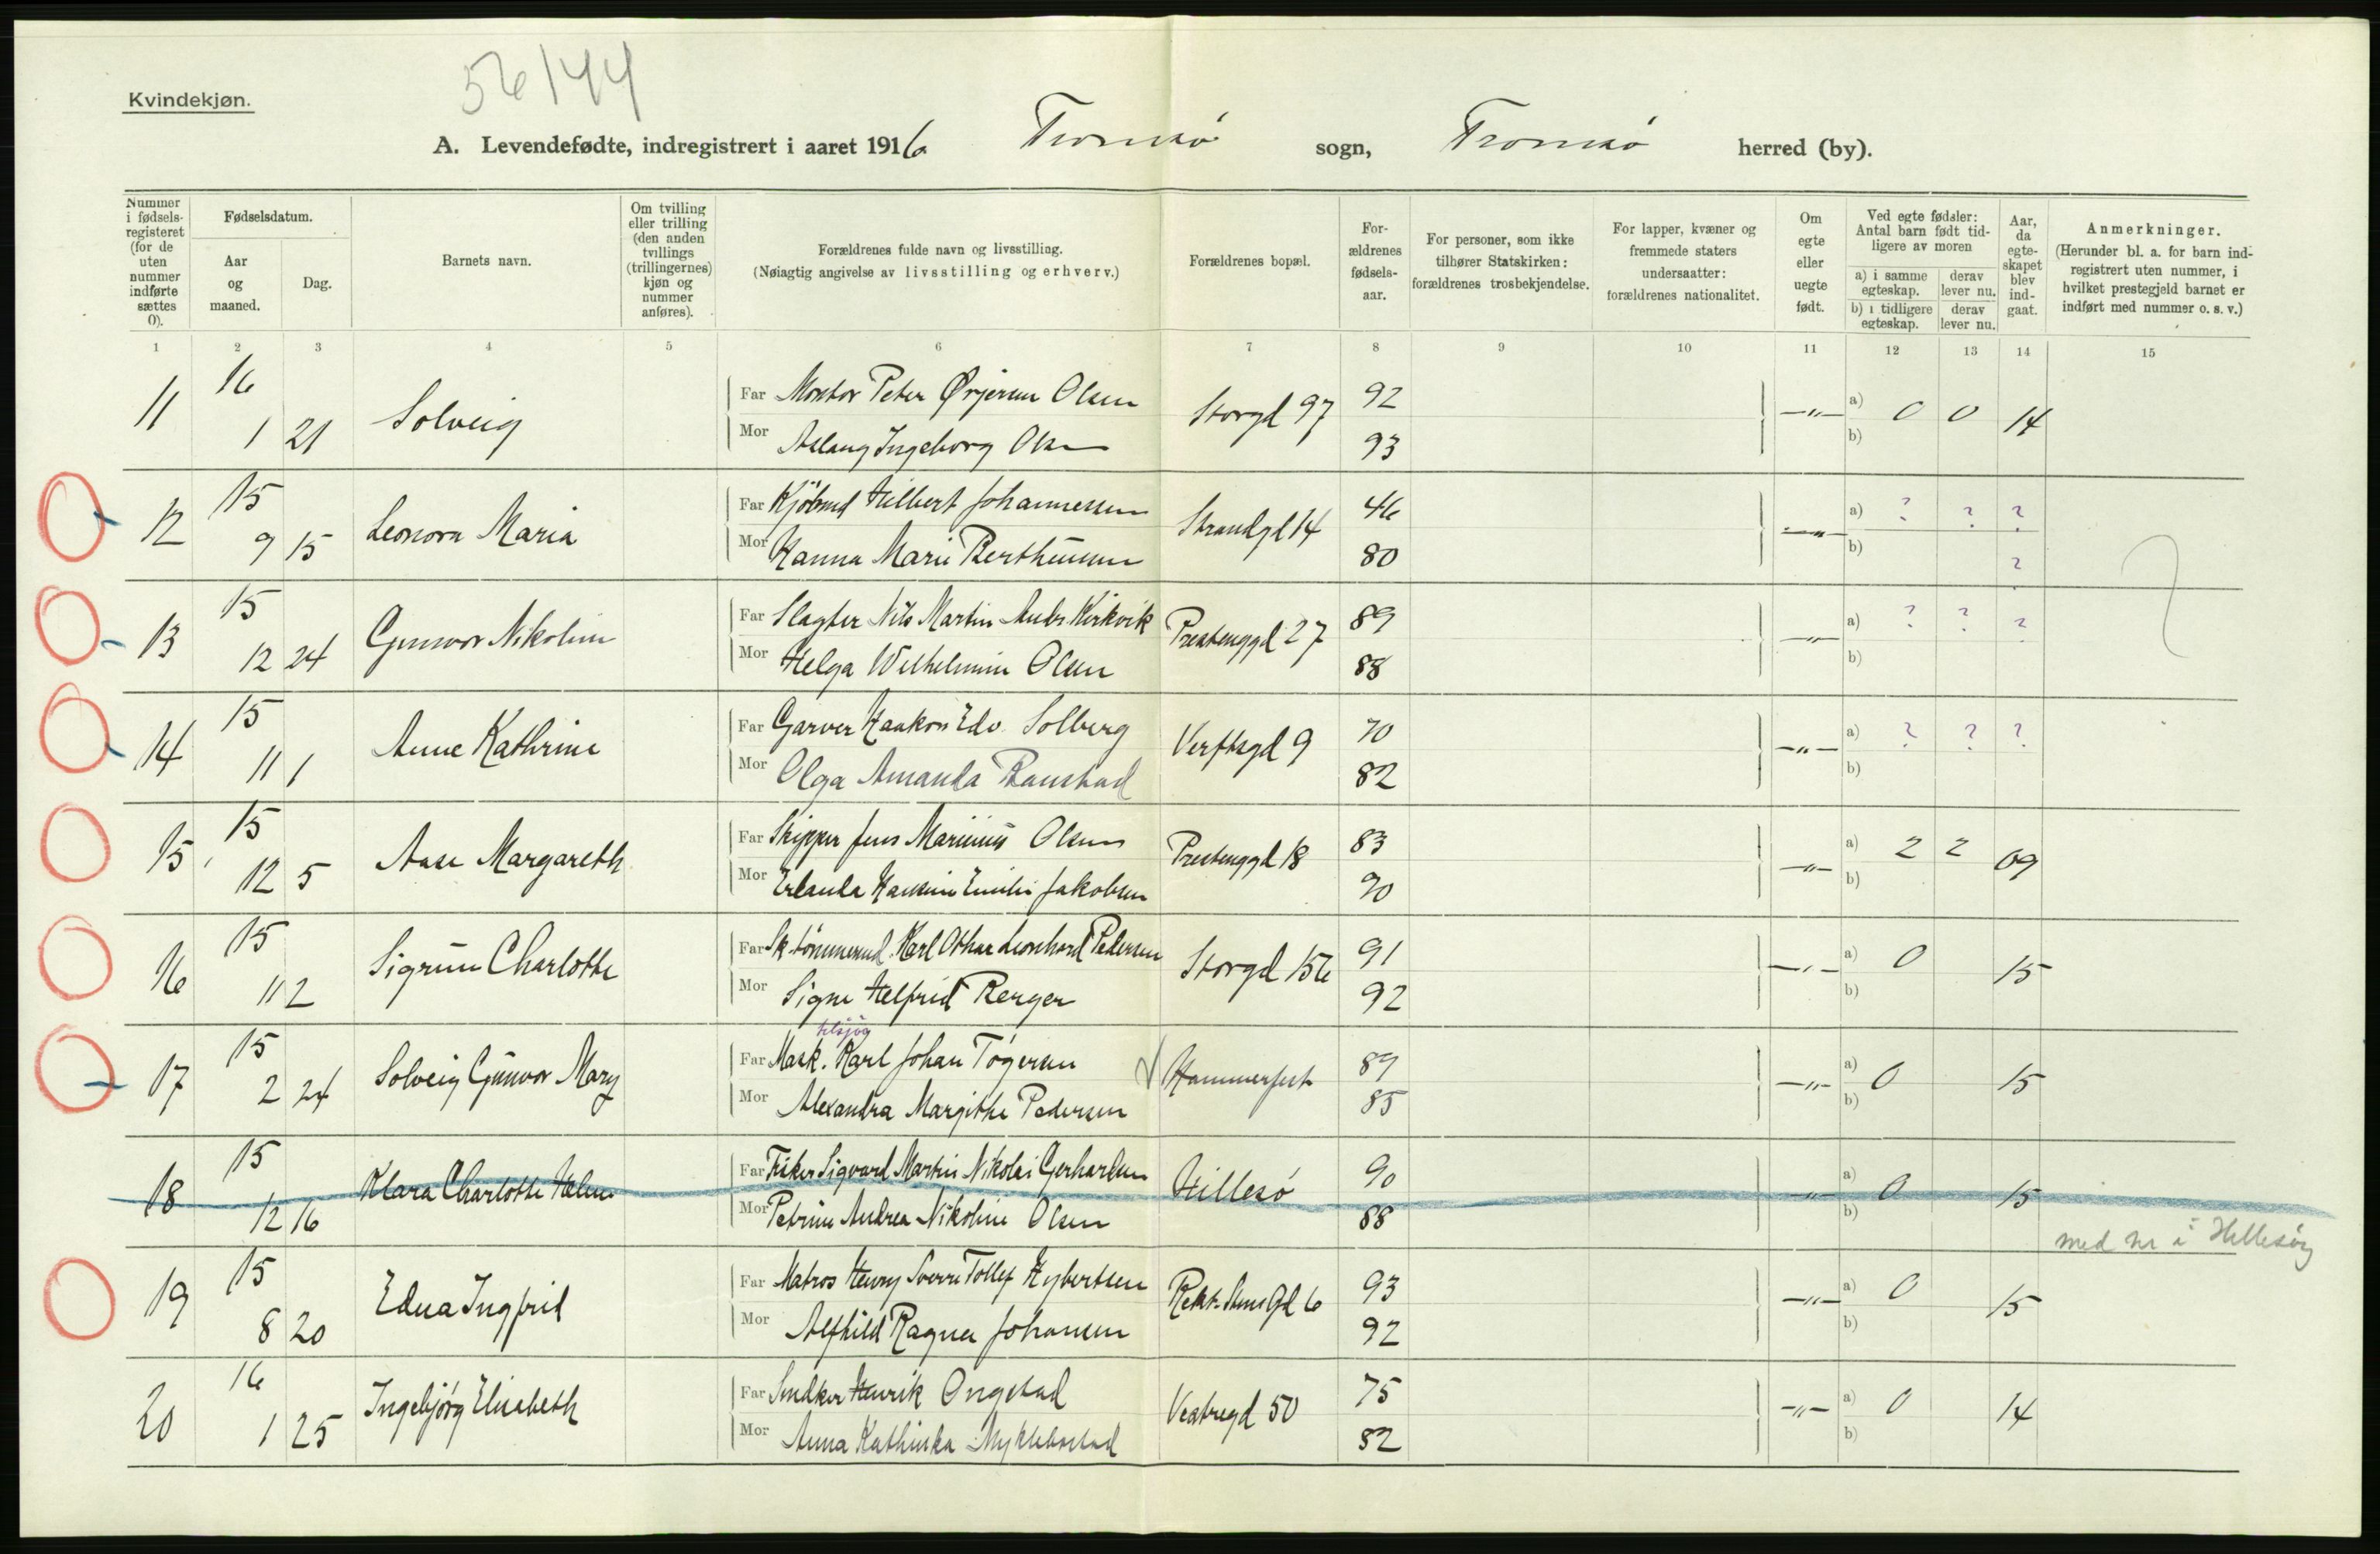 Kvindekjøn.
56/44
A. Levendefødte, indregistrert i aaret 1916 Tromsø sogn, Tromsø herred (by).
Nummer i fødsels-registeret (for de uten nummer indførte sættes 0).
Fødselsdatum.
Aar og maaned.
Dag.
Barnets navn.
Om tvilling eller trilling (den anden tvillings (trillingernes) kjøn og nummer anføres).
Forældrenes fulde navn og livsstilling.
(Nøiagtig angivelse av livsstilling og erhverv.)
Forældrenes bopæl.
For-ældrenes fødsels-aar.
For personer, som ikke tilhører Statskirken: forældrenes trosbekjendelse.
For lapper, kvæner og fremmede staters undersaatter: forældrenes nationalitet.
Om egte eller uegte født.
Ved egte fødsler: Antal barn født tid-ligere av moren
a) i samme egteskap.
derav lever nu.
b) i tidligere egteskap.
derav lever nu.
Aar, da egte-skapet blev ind-gaat.
Anmerkninger.
(Herunder bl. a. for barn ind-registrert uten nummer, i hvilket prestegjeld barnet er indført med nummer o. s. v.)
1 2 3 4 5 6 7 8 9 10 11 12 13 14 15
11 16 1 21 Solveig Far Montør Peter Olsen Storgd 97 92 —"— a) 0 0 14
Mor Aslaug Ingeborg Olsen 93 b)
12 15 9 15 Leonora Maria Far Kjøbmd Hilbert Johannessen Strandgd 14 46 —"— a) ? ? ?
Mor Hanna Marie Bertheussen 80 b) ?
13 15 12 24 Gunvor Nikoline Far Slagter Nils Martin Andr. Kirkvik Prestenggd 27 89 —"— a) ? ? ?
Mor Helga Wilhelmine Olsen 88 b)
14 15 11 1 Anne Kathrine Far Garver Haakon Edv. Solberg Verftsgd 9 70 —"— a) ? ? ?
Mor Olga Amanda 82 b)
15 15 12 5 Aase Margareth Far Skipper Jens Marinius Olsen Prestenggd 18 83 —"— a) 2 2 09
Mor Erlanda Hansine Emilie Jakobsen 90 b)
16 15 11 2 Sigrun Charlotte Far Sk.tømmermd. Karl Othar Leonhard Pedersen Storgd 156 91 —"— a) 0 15
Mor Signe Helfrid Berger 92 b)
17 15 2 24 Solveig Gunvor Mary Far Mask. Karl Johan Togersen Hammerfest 89 —"— a) 0 15
Mor Alexandra Margithe Pedersen 85 b)
18 15 12 16 Klara Charlotte Helene Far Fisker Sigvard Martin Nikolai Gerhardsen Hillesø 90 —"— a) 0 15
Mor Petrine Andrea Nikoline Olsen 88 b)
med nr i Hillesøy
19 15 8 20 Edna Ingfrid Far Matros Henry Sverre Tollef Hybertsen Rekt. Stens Gd 6 93 —"— a) 0 15
Mor Alfhild Ragna Johansen 92 b)
20 16 1 25 Ingebjørg Elisabeth Far Snedker Henrik Ongstad Vestregd 50 75 —"— a) 0 14
Mor Anna Kathinka Myklebostad 82 b)